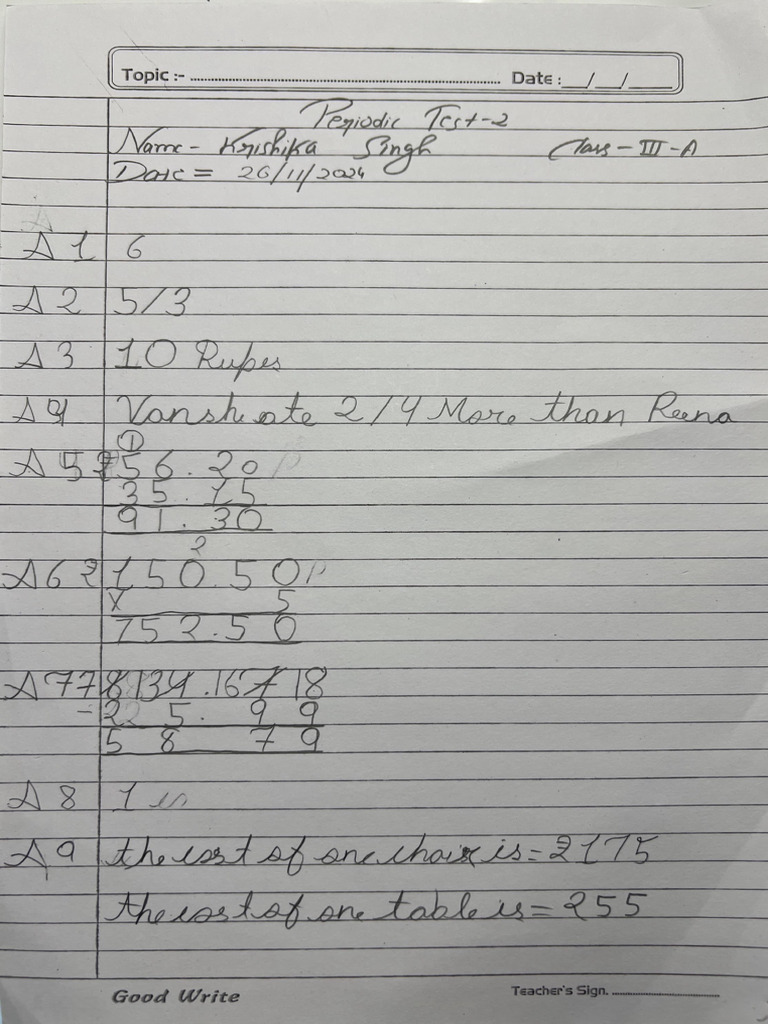 Topic :- Date : / /
Periodic Test-2
Name - Krishika Singh Class - III - A
Date = 26/11/2024
A 1 6
A 2 5/3
A 3 10 Rupes
A 4 Vansh ate 2/4 More than Reena
1
A 5 ₹ 56.20 p
35.15
91.30
2
A 6 ₹ 150.50 p
x 5
752.50
A 7 8 13 4.16 7 18
- 2 5. 9 9
5 8 7 9
A 8 1
A 9 the cost of one chair is = 2175
the cost of one table is = 255
Good Write Teacher's Sign.